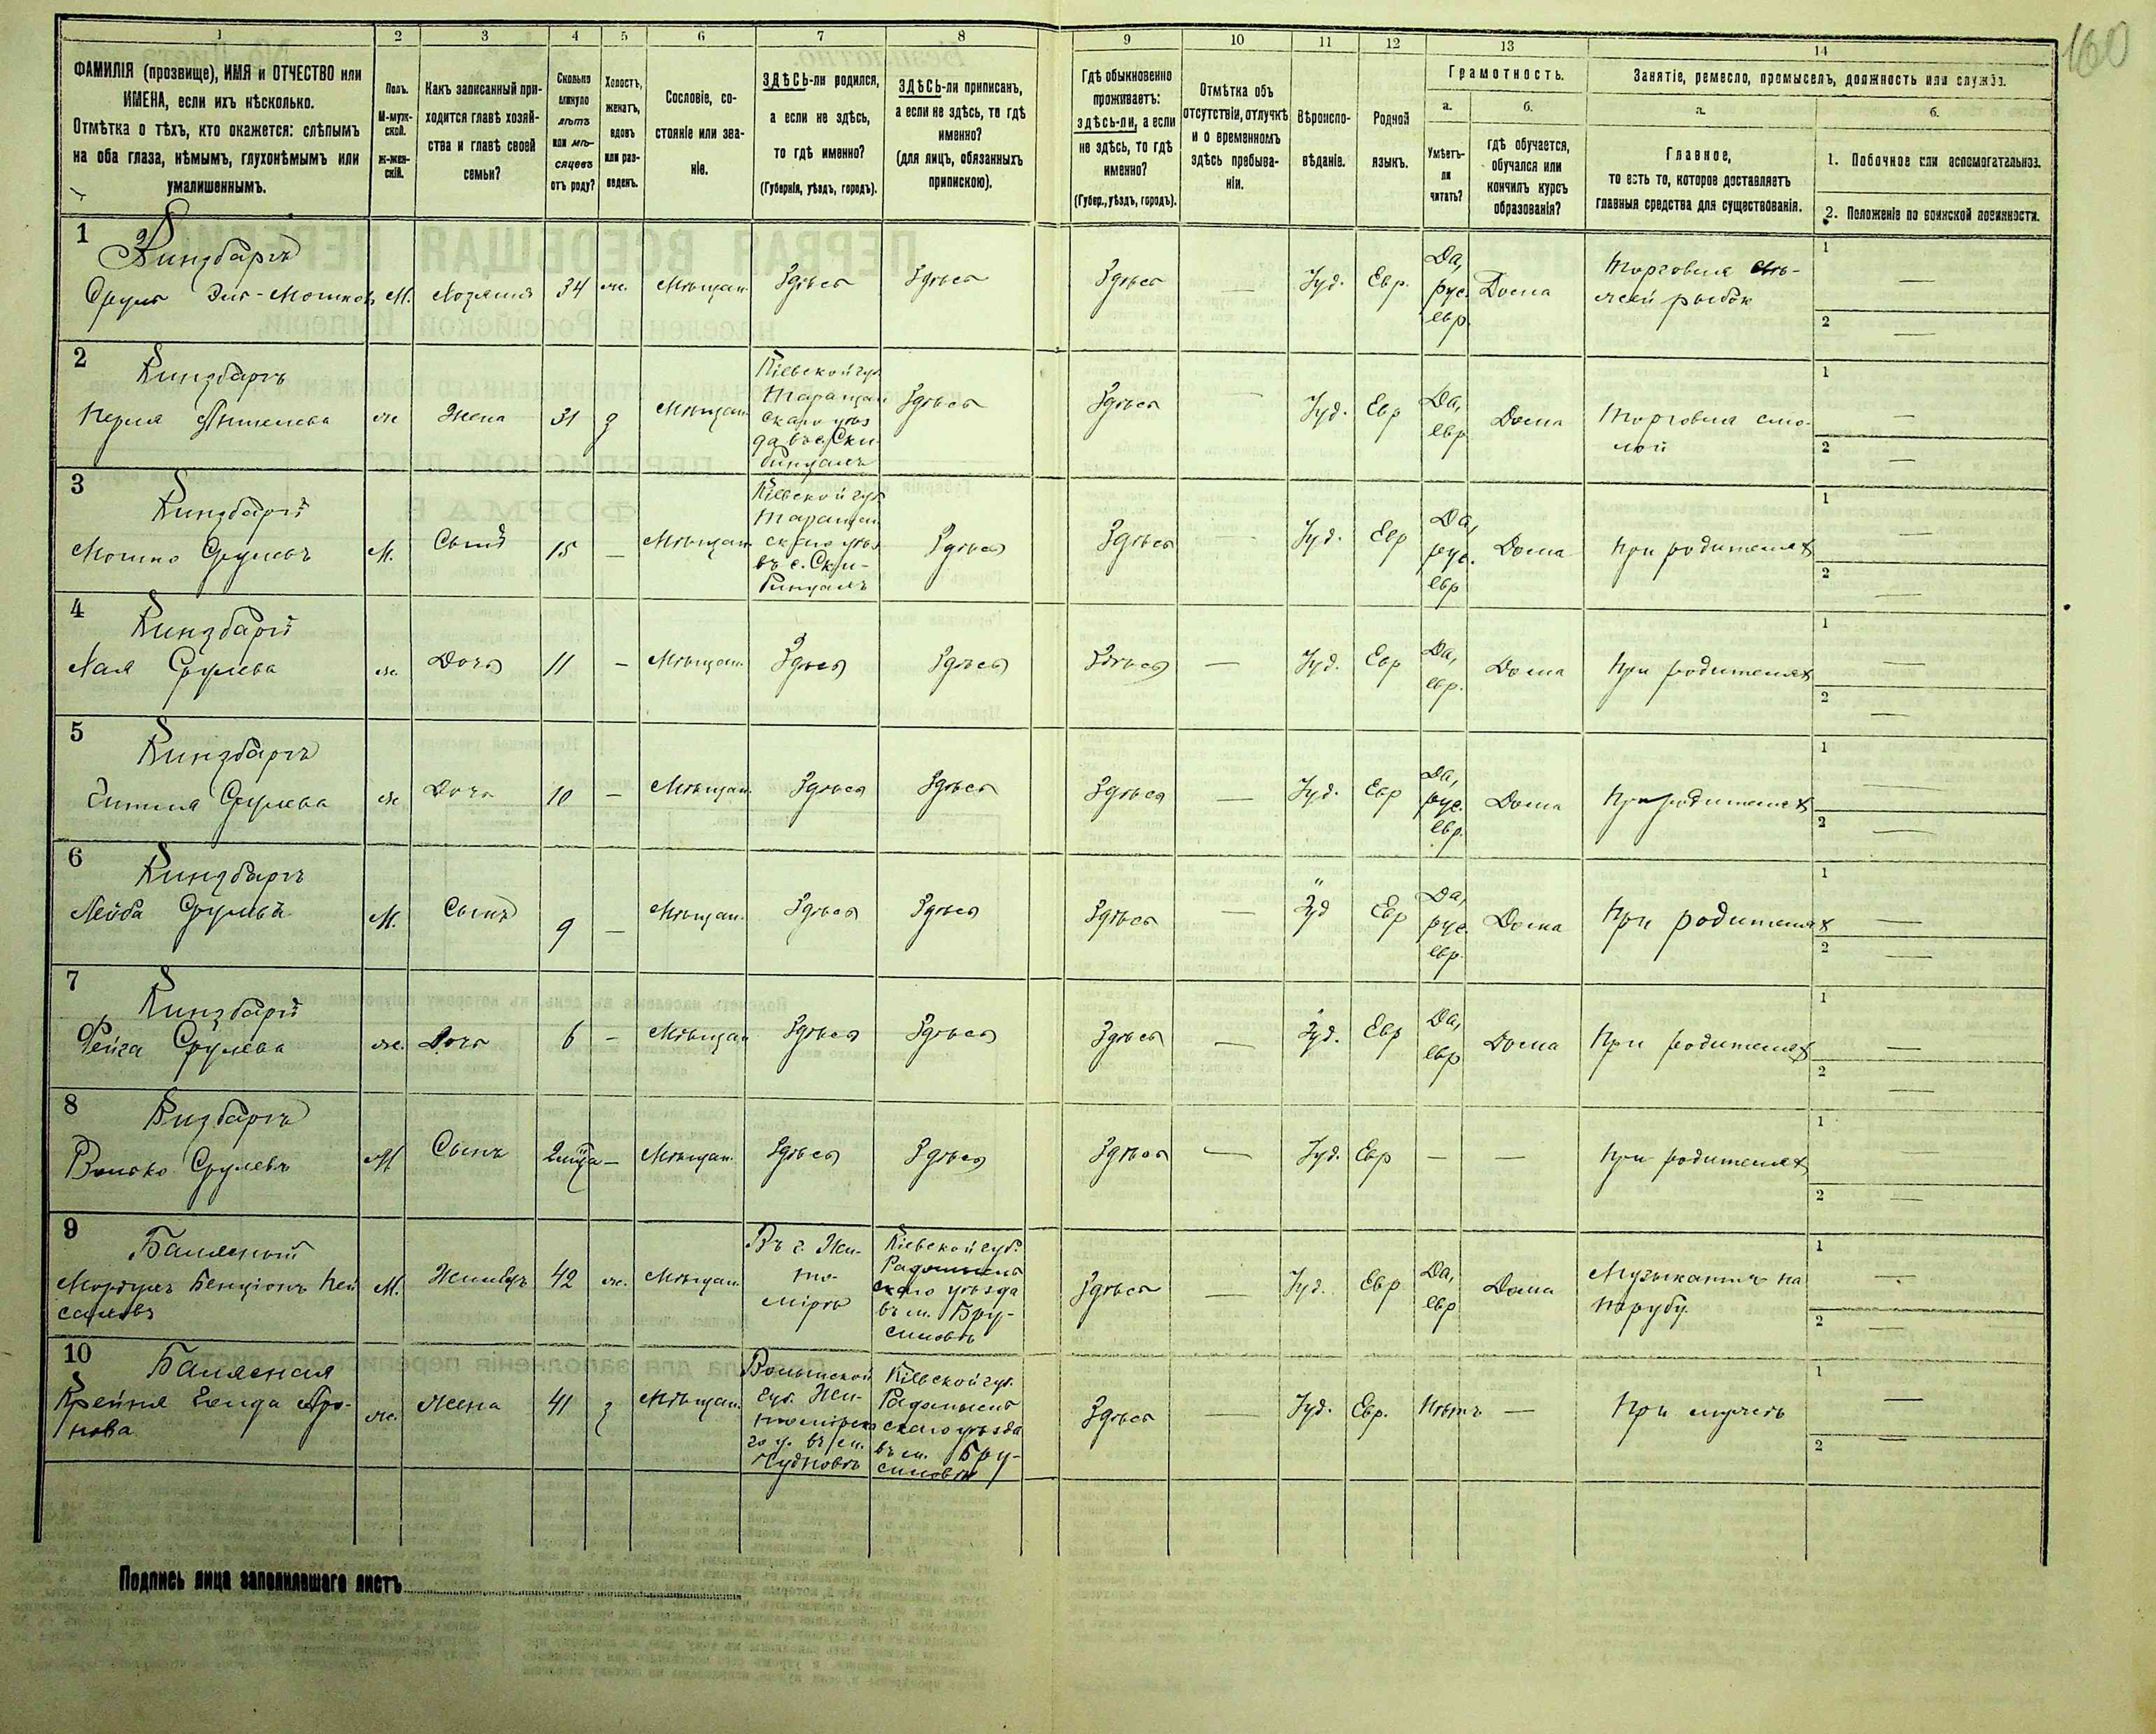 160
1 2 3 4 5 6 7 8 9 10 11 12 13 14
ФАМИЛІЯ (прозвище), ИМЯ и ОТЧЕСТВО или
ИМЕНА, если ихъ нѣсколько.
Отмѣтка о тѣхъ, кто окажется: слѣпымъ
на оба глаза, нѣмымъ, глухонѣмымъ или
умалишеннымъ.
Полъ.
М-муж-
ской.
Ж-жен-
скій.
Какъ записанный при-
ходится главѣ хозяй-
ства и главѣ своей
семьи?
Сколько
минуло
лѣтъ
или мѣ-
сяцевъ
отъ роду?
Холостъ,
женатъ,
вдовъ
или раз-
веденъ.
Сословіе, со-
стояніе или зва-
ніе.
ЗДѢСЬ-ли родился,
а если не здѣсь,
то гдѣ именно?
(Губернія, уѣздъ, городъ).
ЗДѢСЬ-ли приписанъ,
а если не здѣсь, то гдѣ
именно?
(для лицъ, обязанныхъ
припискою).
Гдѣ обыкновенно
проживаетъ:
здѣсь-ли, а если
не здѣсь, то гдѣ
именно?
(Губер., уѣздъ, городъ).
Отмѣтка объ
отсутствіи, отлучкѣ
и о временномъ
здѣсь пребыва-
ніи.
Вѣроиспо-
вѣданіе.
Родной
языкъ.
Грамотность.
а.
Умѣетъ-
ли
читать?
б.
гдѣ обучается,
обучался или
кончилъ курсъ
образованія?
Занятіе, ремесло, промыселъ, должность или служба.
а.
Главное,
то есть то, которое доставляетъ
главныя средства для существованія.
б.
1. Побочное или вспомогательное.
2. Положеніе по воинской повинности.
1
Кинзбаргъ
Сруль М. Хозяинъ 34 ж. Мѣщан. Здѣсь Здѣсь Здѣсь — Іуд. Евр. Да, рус. евр. Дома
Торговля
рыбой
1 —
2 —
2
Кинзбаргъ
Перля ж Жена 31 з Мѣщан.
Кіевской губ.
Таращан
скаго уѣз
да въ с. Ски-
бинцахъ
Здѣсь Здѣсь — Іуд. Евр Да, евр Дома
Торговля смо-
лой
1 —
2 —
3
Кинзбаргъ
Мошко Срулевъ М. Сынъ 15 — Мѣщан.
Кіевской губ
Таращан
скаго уѣз
въ с. Ски-
бинцахъ
Здѣсь Здѣсь — Іуд. Евр Да, рус. евр Дома При родителях
1 —
2 —
4
Кинзбаргъ
Хая Срулева ж. Дочь 11 — Мѣщан. Здѣсь Здѣсь Здѣсь — Іуд. Евр Да, евр. Дома При родителях
1 —
2 —
5
Кинзбаргъ
Срулева ж Дочь 10 — Мѣщан. Здѣсь Здѣсь Здѣсь — Іуд. Евр Да, рус. евр. Дома При родителях
1 —
2 —
6
Кинзбаргъ
Лейба Срулевъ М. Сынъ 9 — Мѣщан. Здѣсь Здѣсь Здѣсь — Іуд Евр Да, рус. евр. Дома При родителях
1 —
2 —
7
Кинзбаргъ
Фейга Срулева ж. Дочь 6 — Мѣщан Здѣсь Здѣсь Здѣсь — Іуд. Евр Да, евр Дома При родителях
1 —
2 —
8
Кизбаргъ
Волько Срулевъ М Сынъ — Мѣщан. Здѣсь Здѣсь Здѣсь — Іуд. Евр — — При родителях
1 —
2 —
9
Балясный
Мордухъ Бенціонъ Пей
саховъ М. Жилецъ 42 ж. Мѣщан.
Въ г. Жи-
то-
мірѣ
Кіевской губ.
Радомысль
скаго уѣзда
въ м. Бру-
силовѣ
Здѣсь — Іуд. Евр Да, евр Дома
Музыкантъ на
трубу
1 —
2 —
10
Балясная
Крейня Аро-
нова ж. Жена 41 з Мѣщан.
Волынской
губ. Жи-
томірска
го у. въ м.
Чудновѣ
Кіевской губ.
Радомысль
скаго уѣзда
въ м. Бру-
силовѣ
Здѣсь — Іуд. Евр. Нѣтъ — При мужѣ
1 —
2 —
Подпись лица заполнявшаго листъ